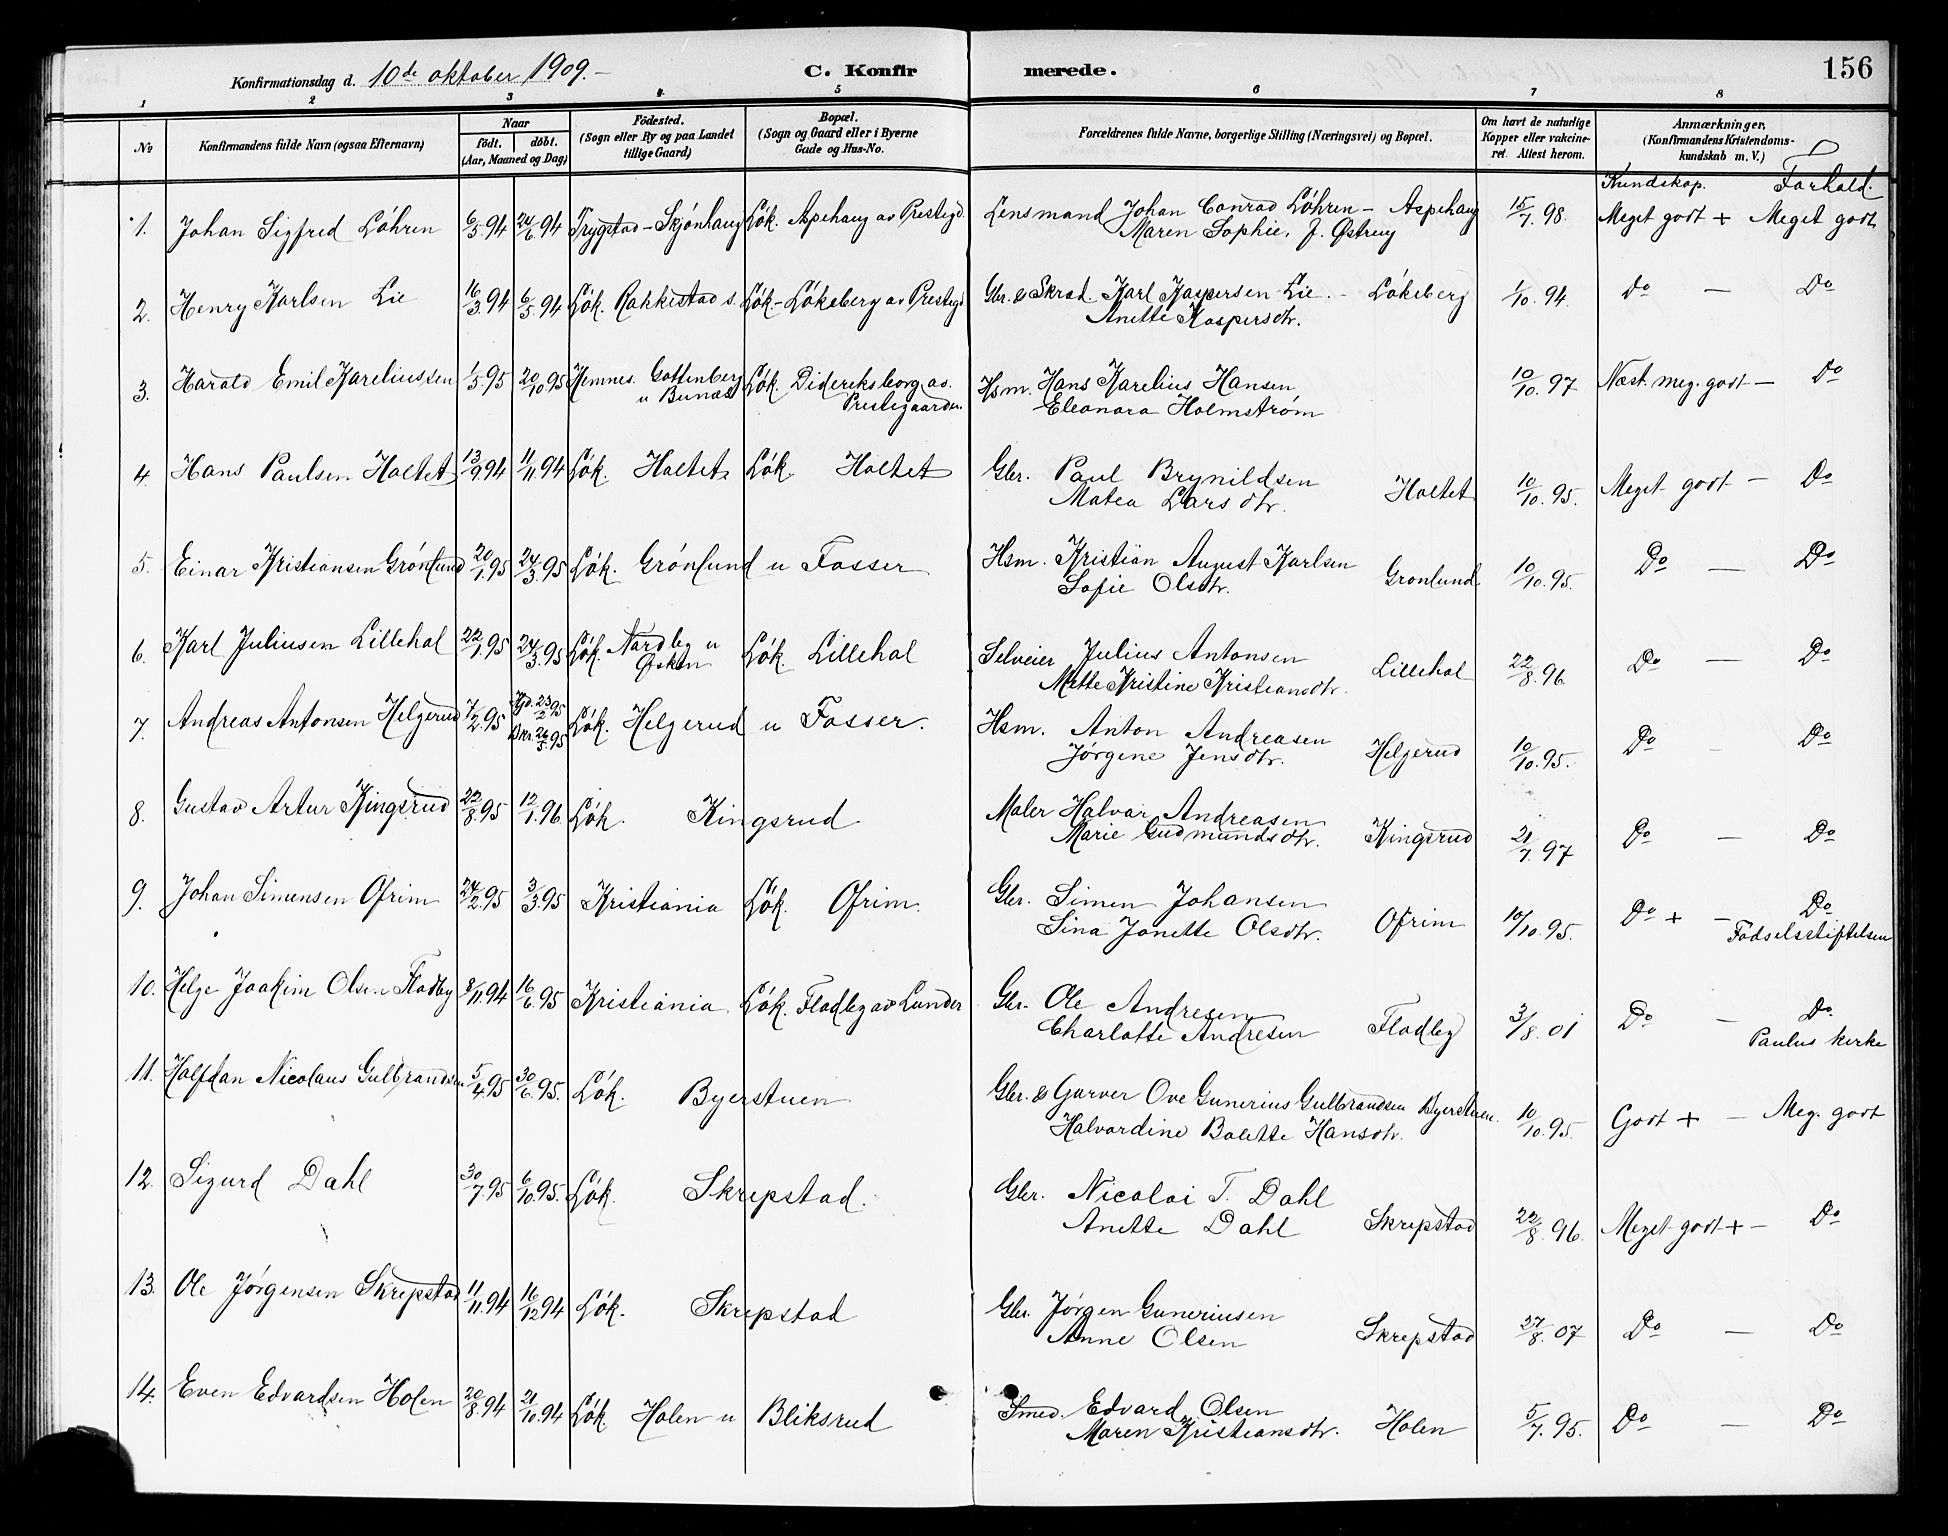 156
Konfirmationsdag d. 10de oktober 1909. – C. Konfirmerede.
1 2 3 4 5 6 7 8
No Konfirmandens fulde Navn (ogsaa Efternavn) Naar födt. döbt. (Aar, Maaned og Dag) Födested. (Sogn eller By og paa Landet tillige Gaard) Bopæl. (Sogn og Gaard eller i Byerne Gade og Hus-No. Forældrenes fulde Navne, borgerlige Stilling (Næringsvei) og Bopæl. Om havt de naturlige Kopper eller vakcineret. Attest herom. Anmærkninger. (Konfirmandens Kristendomskundskab m. V.)
Kundskap. Forhold.
1. Johan Sigfred Löhren 6/3.94 24/6.94 Trygstad – Skjönhaug Løk. Aspehaug av Prestegd. Lensmand Johan Conrad Löhren – Aspehaug 15/7.98. Meget godt + Meget godt
Maren Sophie, f. Østreng
2. Henry Karlsen Lie 16/3.94 6/5.94 Løk. Rakkestad s. Løk – Løkeberg av Prestegd Gbr. & Skræd. Karl Kaspersen Lie. – Lökeberg 1/10.94. Do – Do
Anette Kaspersdtr.
3. Harald Emil Kareliussen 1/5.95 20/10.95 Hemnes. Gottenberg u Bunæs Løk. Dideriksborg av. Prestegaarden. Hsm. Hans Karelius Hansen 10/10.97 Næst. meg. godt – Do
Eleonora Holmstrøm
4. Hans Paulsen Holtet 13/9.94 11/11.94 Løk. Holtet. Løk. Holtet Gbr. Paul Brynildsen Holtet 10/10.95. Meget godt – Do
Matea Larsdtr.
5. Einar Kristiansen Grönlund 20/1.95 24/3.95 Løk. Grönlund u Fosser Hsm. Kristian August Karlsen Grönlund 10/10.95. Do – Do
Sofie Olsdtr.
6. Karl Juliusen Lillehol 22/1.95 24/3.95 Løk. Nordby u Øsken Løk. Lillehol Selveier Julius Antonsen Lillehol 22/8.96. Do – Do
Mette Kristine Kristiansdtr.
7. Andreas Antonsen Helgerud 7/2.95 Hjd. 23/2 95 Dkr. 26/5.95 Løk. Helgerud u Fosser. Hsm. Anton Andreasen Helgerud 10/10.95. Do – Do
Jørgine Jensdtr.
8. Gustav Artur Kingsrud 22/8.95 12/1.96. Løk. Kingsrud Maler Halvor Andreasen Kingsrud 21/7.97 Do – Do
Marie Gudmundsdtr.
9. Johan Simensen Ofrim 24/2.95 3/3.95 Kristiania Løk. Ofrim. Gbr. Simen Johansen Ofrim 10/10.95. Do + – Do
Sina Jonette Olsdtr. Födselsstiftelsen
10. Helge Joakim Olsen Flodby 8/11.94 16/6.95 Kristiania Løk. Flodby av Lunder Gbr. Ole Andresen Flodby 3/8.01 Do – Do.
Charlotte Andresen Paulus kirke
11. Halfdan Nicolaus Gulbrandsen 5/4.95 30/6.95. Løk. Byerstuen Gbr. & Garver Ove Gunerius Gulbrandsen Byerstuen. 10/10.95. Godt + – Meg. godt
Halvordine Bolette Hansdtr.
12. Sigurd Dahl 30/7.95 6/10.95. Løk. Skrepstad. Gbr. Nicolai T. Dahl Skrepstad 22/8.96. Meget godt + – Do
Anette Dahl
13. Ole Jörgensen Skrepstad 11/11.94 16/12 94 Løk. Skrepstad Gbr. Jörgen Guneriusen Skrepstad 27/8.07 Do – Do
Anne Olsen
14. Even Edvardsen Holen 20/8.94 21/10.94 Løk. Holen u Bliksrud Smed. Edvard Olsen Holen 5/7.95. Do – Do
Maren Kristiansdtr.